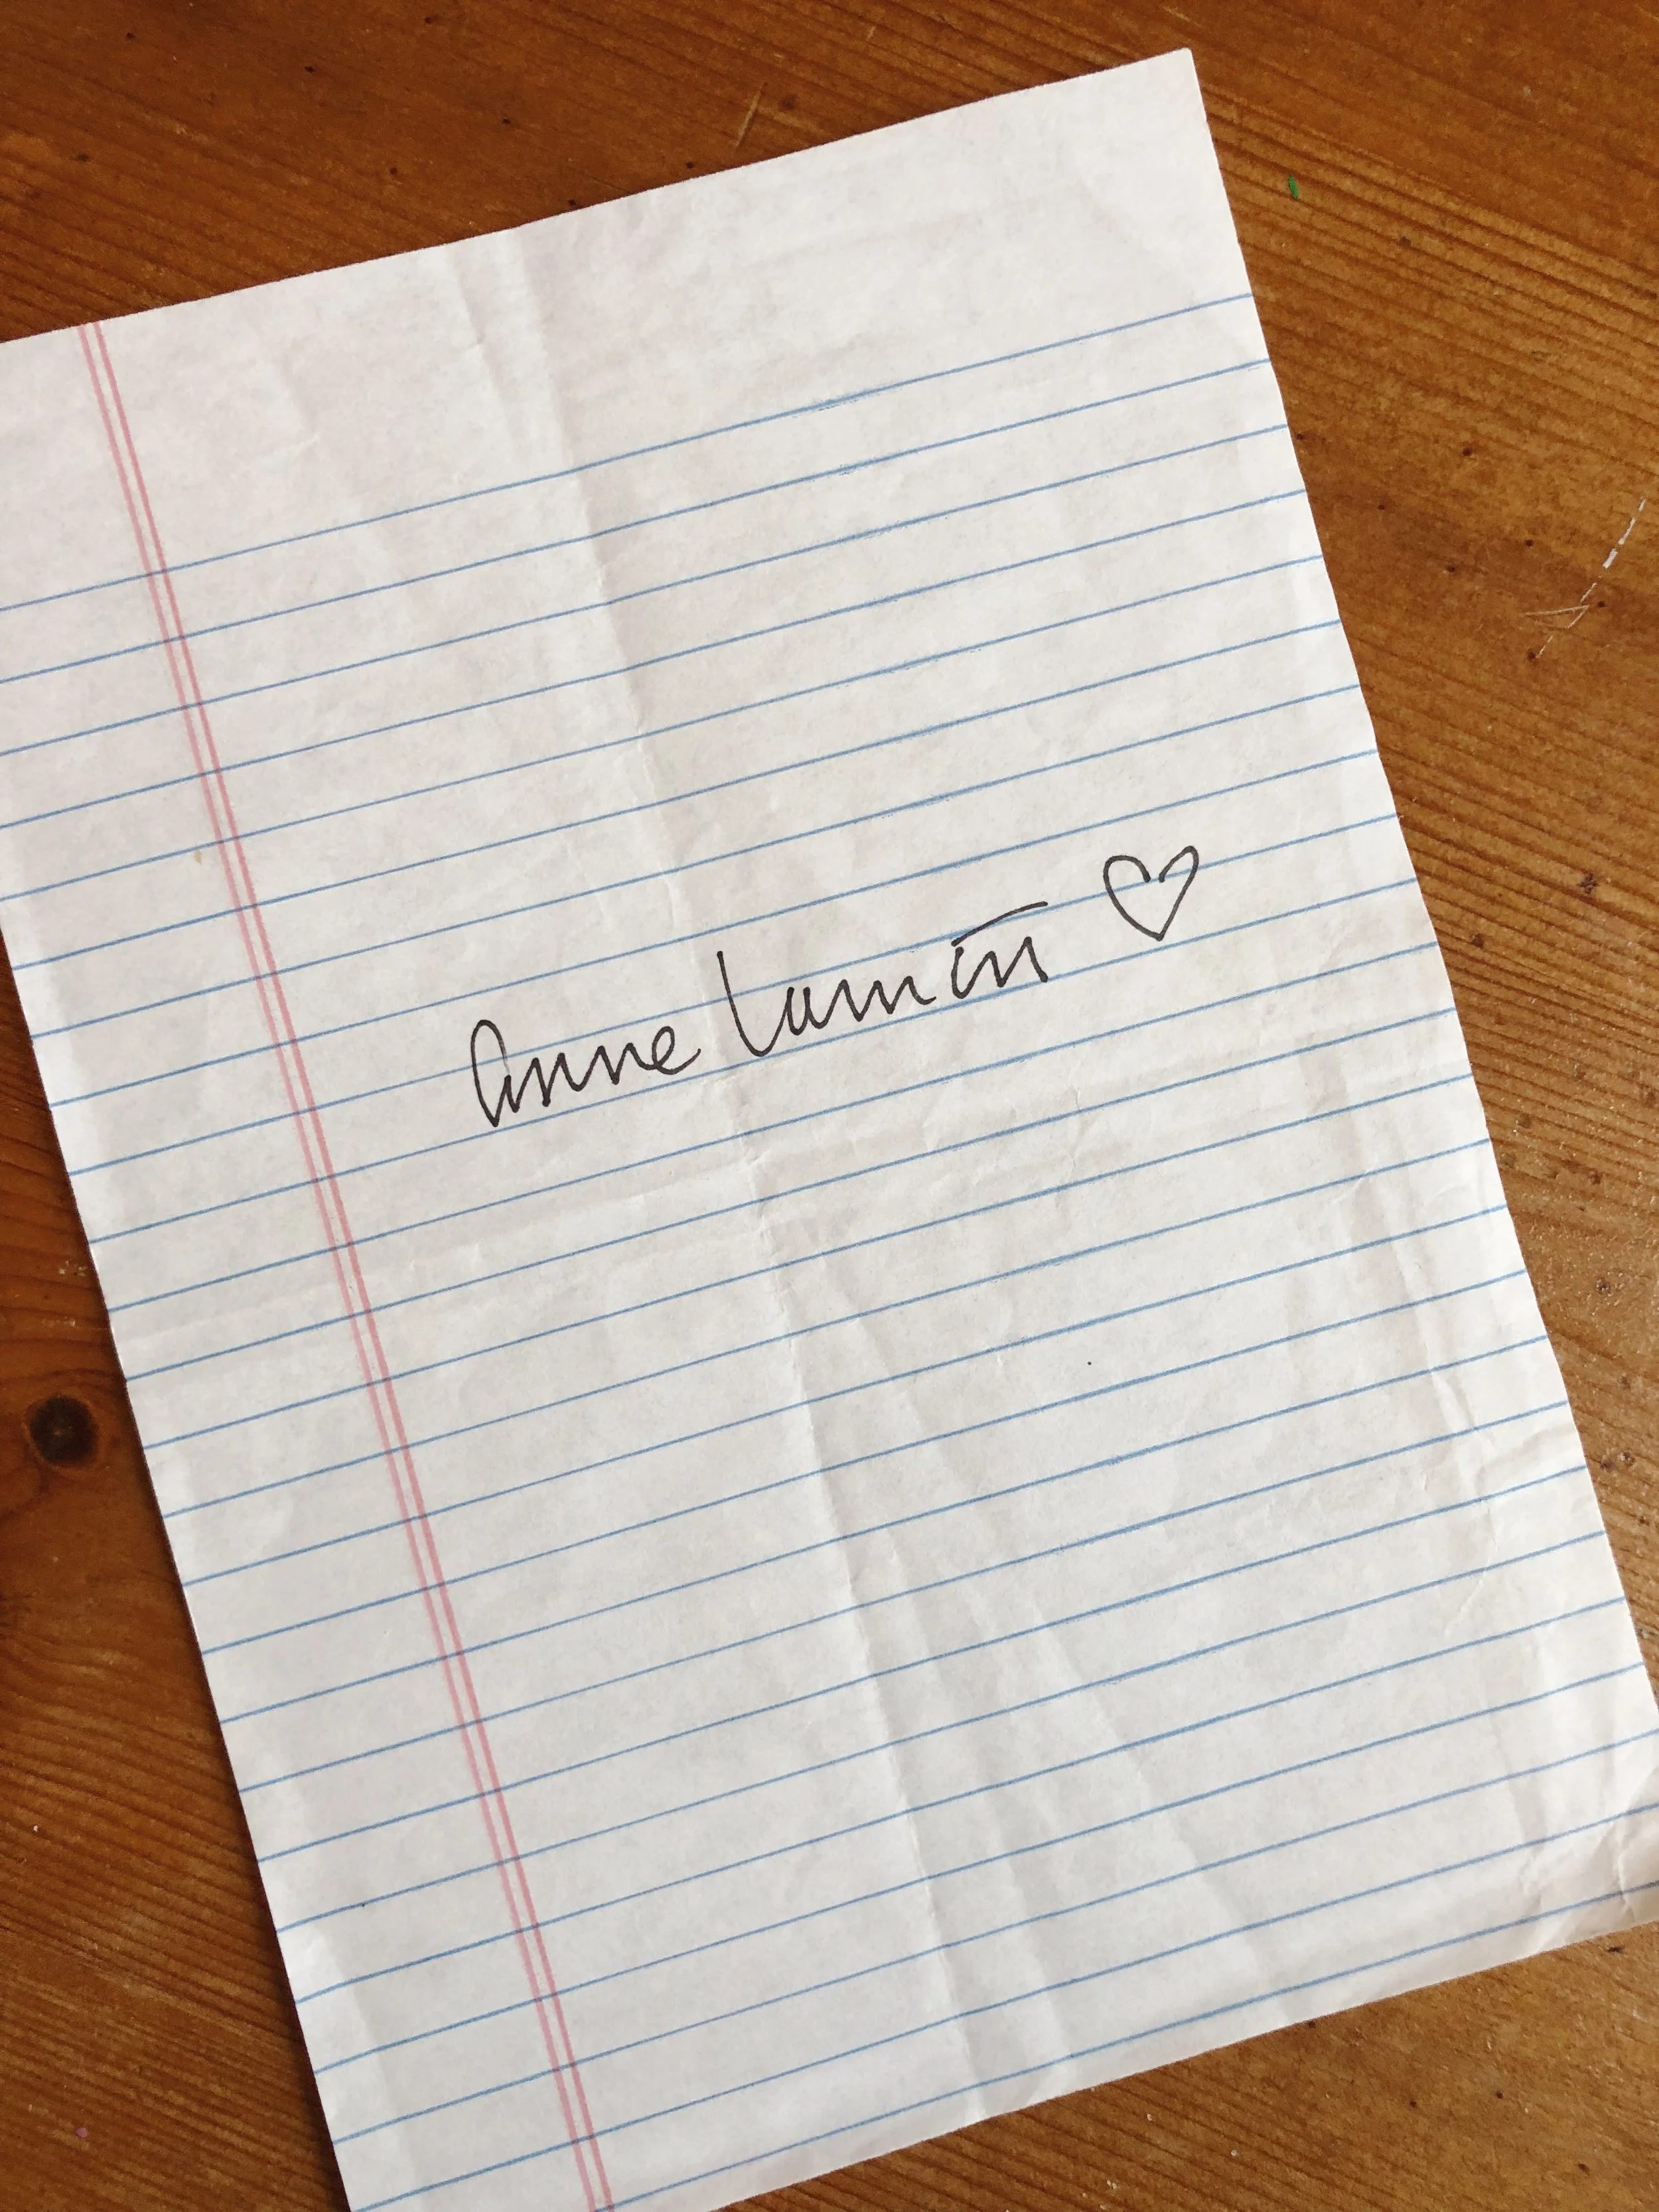 Anne Lamott ♡